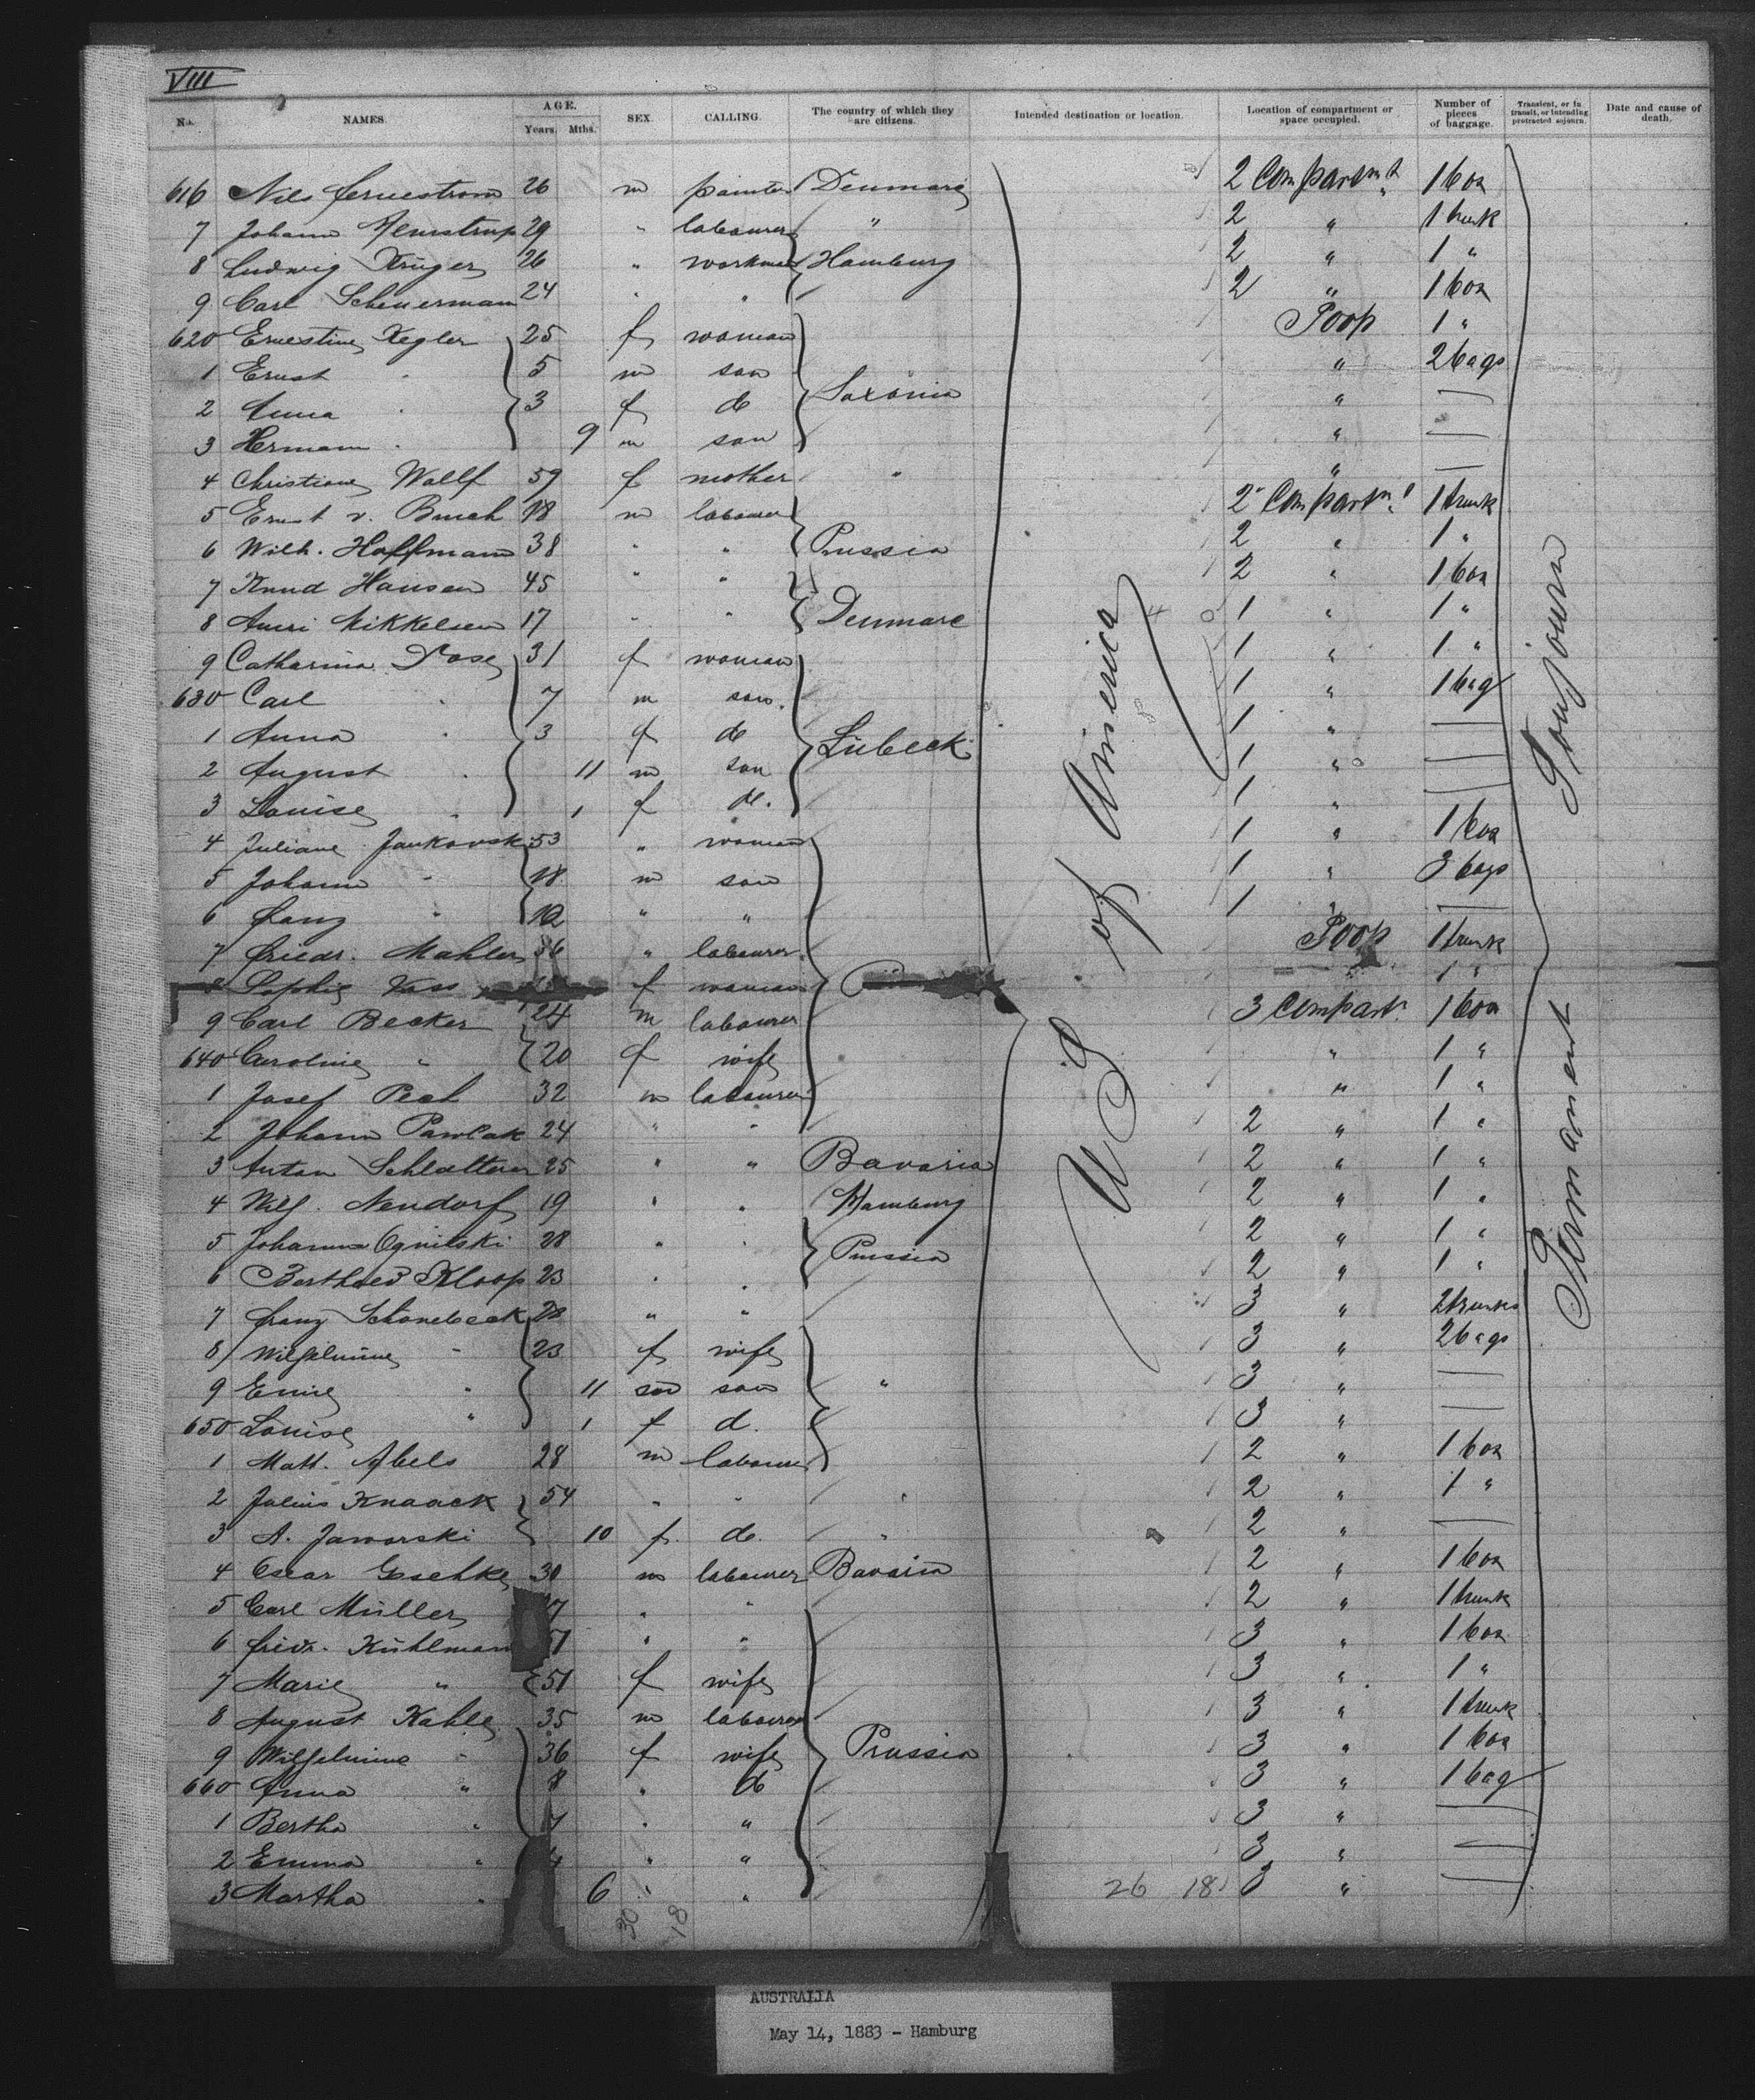 VIII
No. NAMES. AGE. Years. Mths. SEX. CALLING. The country of which they are citizens. Intended destination or location. Location of compartment or space occupied. Number of pieces of baggage. Transient, or in transit, or intending protracted sojourn. Date and cause of death.
616 Nils 26 m painter Denmark 2 Compartmt 1 box
7 Johann 29 " labourer " 2 " 1 trunk
8 Ludwig Krüger 26 " workman Hamburg 2 " 1 "
9 Carl Scheuermann 24 " " 2 " 1 box
620 Ernestine Kegler 25 f woman Poop 1 "
1 Ernst " 5 m son " 2 bags
2 Anna " 3 f do Saxonia " —
3 Hermann " 9 m son " —
4 Christiane Wollf 59 f mother " " —
5 Ernst v. Busch 18 m labourer 2 Compartm. 1 trunk
6 Wilh. Hoffmann 38 " " Prussia 2 " 1 "
7 Knud Hansen 45 " " 2 " 1 box
8 Mikkelsen 17 " " Denmark 1 " 1 "
9 Catharina 31 f woman 1 " 1 "
630 Carl " 7 m son 1 " 1 bag
1 Anna " 3 f do Lübeck 1 " —
2 August " 11 m son 1 " —
3 Louise " 1 f do. 1 " —
4 Juliane Jankovsk 53 " woman 1 " 1 box
5 Johann " 18 m son 1 " 3 bags
6 Franz " 10 " " 1 " —
7 Friedr. Mahler 36 " labourer Poop 1 trunk
8 Sophie Vass f woman " 1 "
9 Carl Becker 24 m labourer 3 Compart. 1 box
640 Caroline " 20 f wife " 1 "
1 Josef Pech 32 m labourer " 1 "
2 Johann Pawlak 24 " " 2 " 1 "
3 Anton Schlatterer 25 " " Bavaria 2 " 1 "
4 Wilh. Neudorf 19 " " Hamburg 2 " 1 "
5 Johann 28 " " Prussia 2 " 1 "
6 Berthold Kloop 23 " " 2 " 1 "
7 Franz Schönebeck 28 " " 3 " 2 trunks
8 Wilhelmine " 23 f wife 3 " 2 bags
9 Emil " 11 son son " 3 " —
650 Louise " 1 f d. 3 " —
1 Matt. Abels 28 m labourer 2 " 1 box
2 Julius Knaack 54 " " " 2 " 1 "
3 A. Jaworski 10 f. do. " 2 " —
4 Oscar Geschke 30 m labourer Bavaria 2 " 1 box
5 Carl Müller 7 " " 2 " 1 trunk
6 Friedr. Kühlmann 51 " " 3 " 1 box
7 Marie " 51 f wife 3 " 1 "
8 August Kahle 35 m labourer 3 " 1 trunk
9 Wilhelmine " 36 f wife Prussia 3 " 1 box
660 Anna " 8 " do 3 " 1 bag
1 Bertha " 7 " " 3 " —
2 Emma " 4 " " 3 " —
3 Martha " 6 " " 26 18 3 " —
30 18
U S of America
Permanent Soujourn
AUSTRALIA
May 14, 1883 - Hamburg